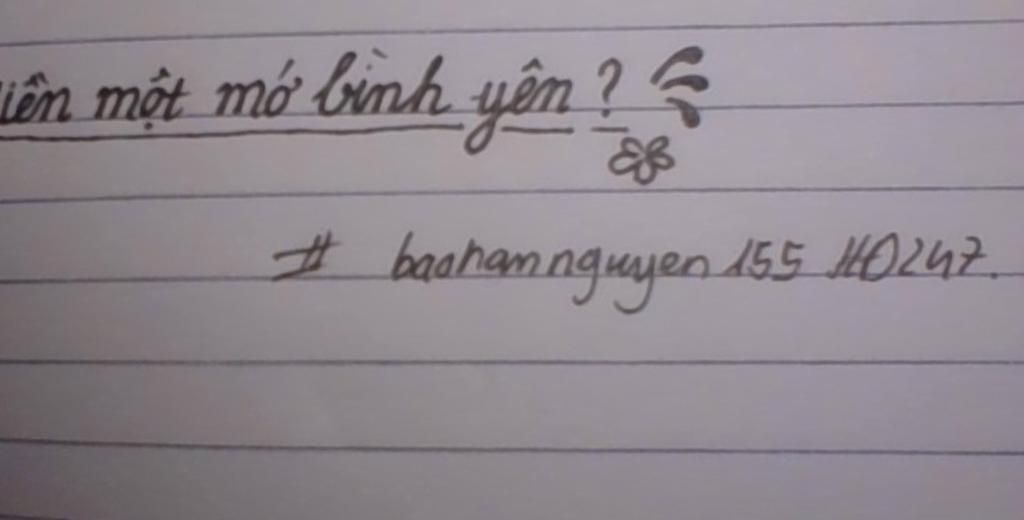 iên một mớ bình yên?
# baohamnguyen155 HO247.